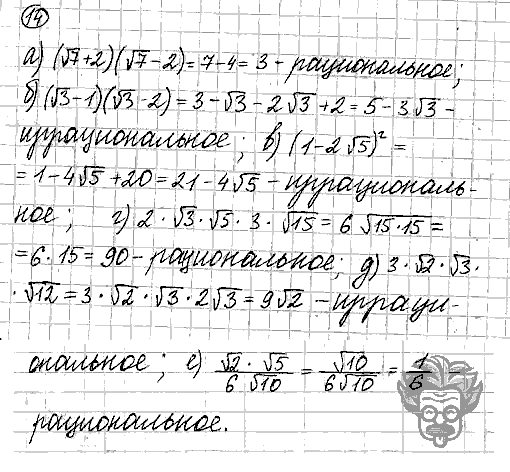 14
а) (√7+2)(√7-2)=7-4=3 - рациональное;
б) (√3-1)(√3-2)=3-√3-2√3+2=5-3√3-
иррациональное; в) (1-2√5)²=
=1-4√5+20=21-4√5-иррациональ-
ное; г) 2·√3·√5·3·√15=6√15·15=
=6·15=90-рациональное; д) 3·√2·√3·
·√12=3·√2·√3·2√3=9√2-ирраци-
ональное; е) √2·√5/6√10=√10/6√10=1/6-
рациональное.